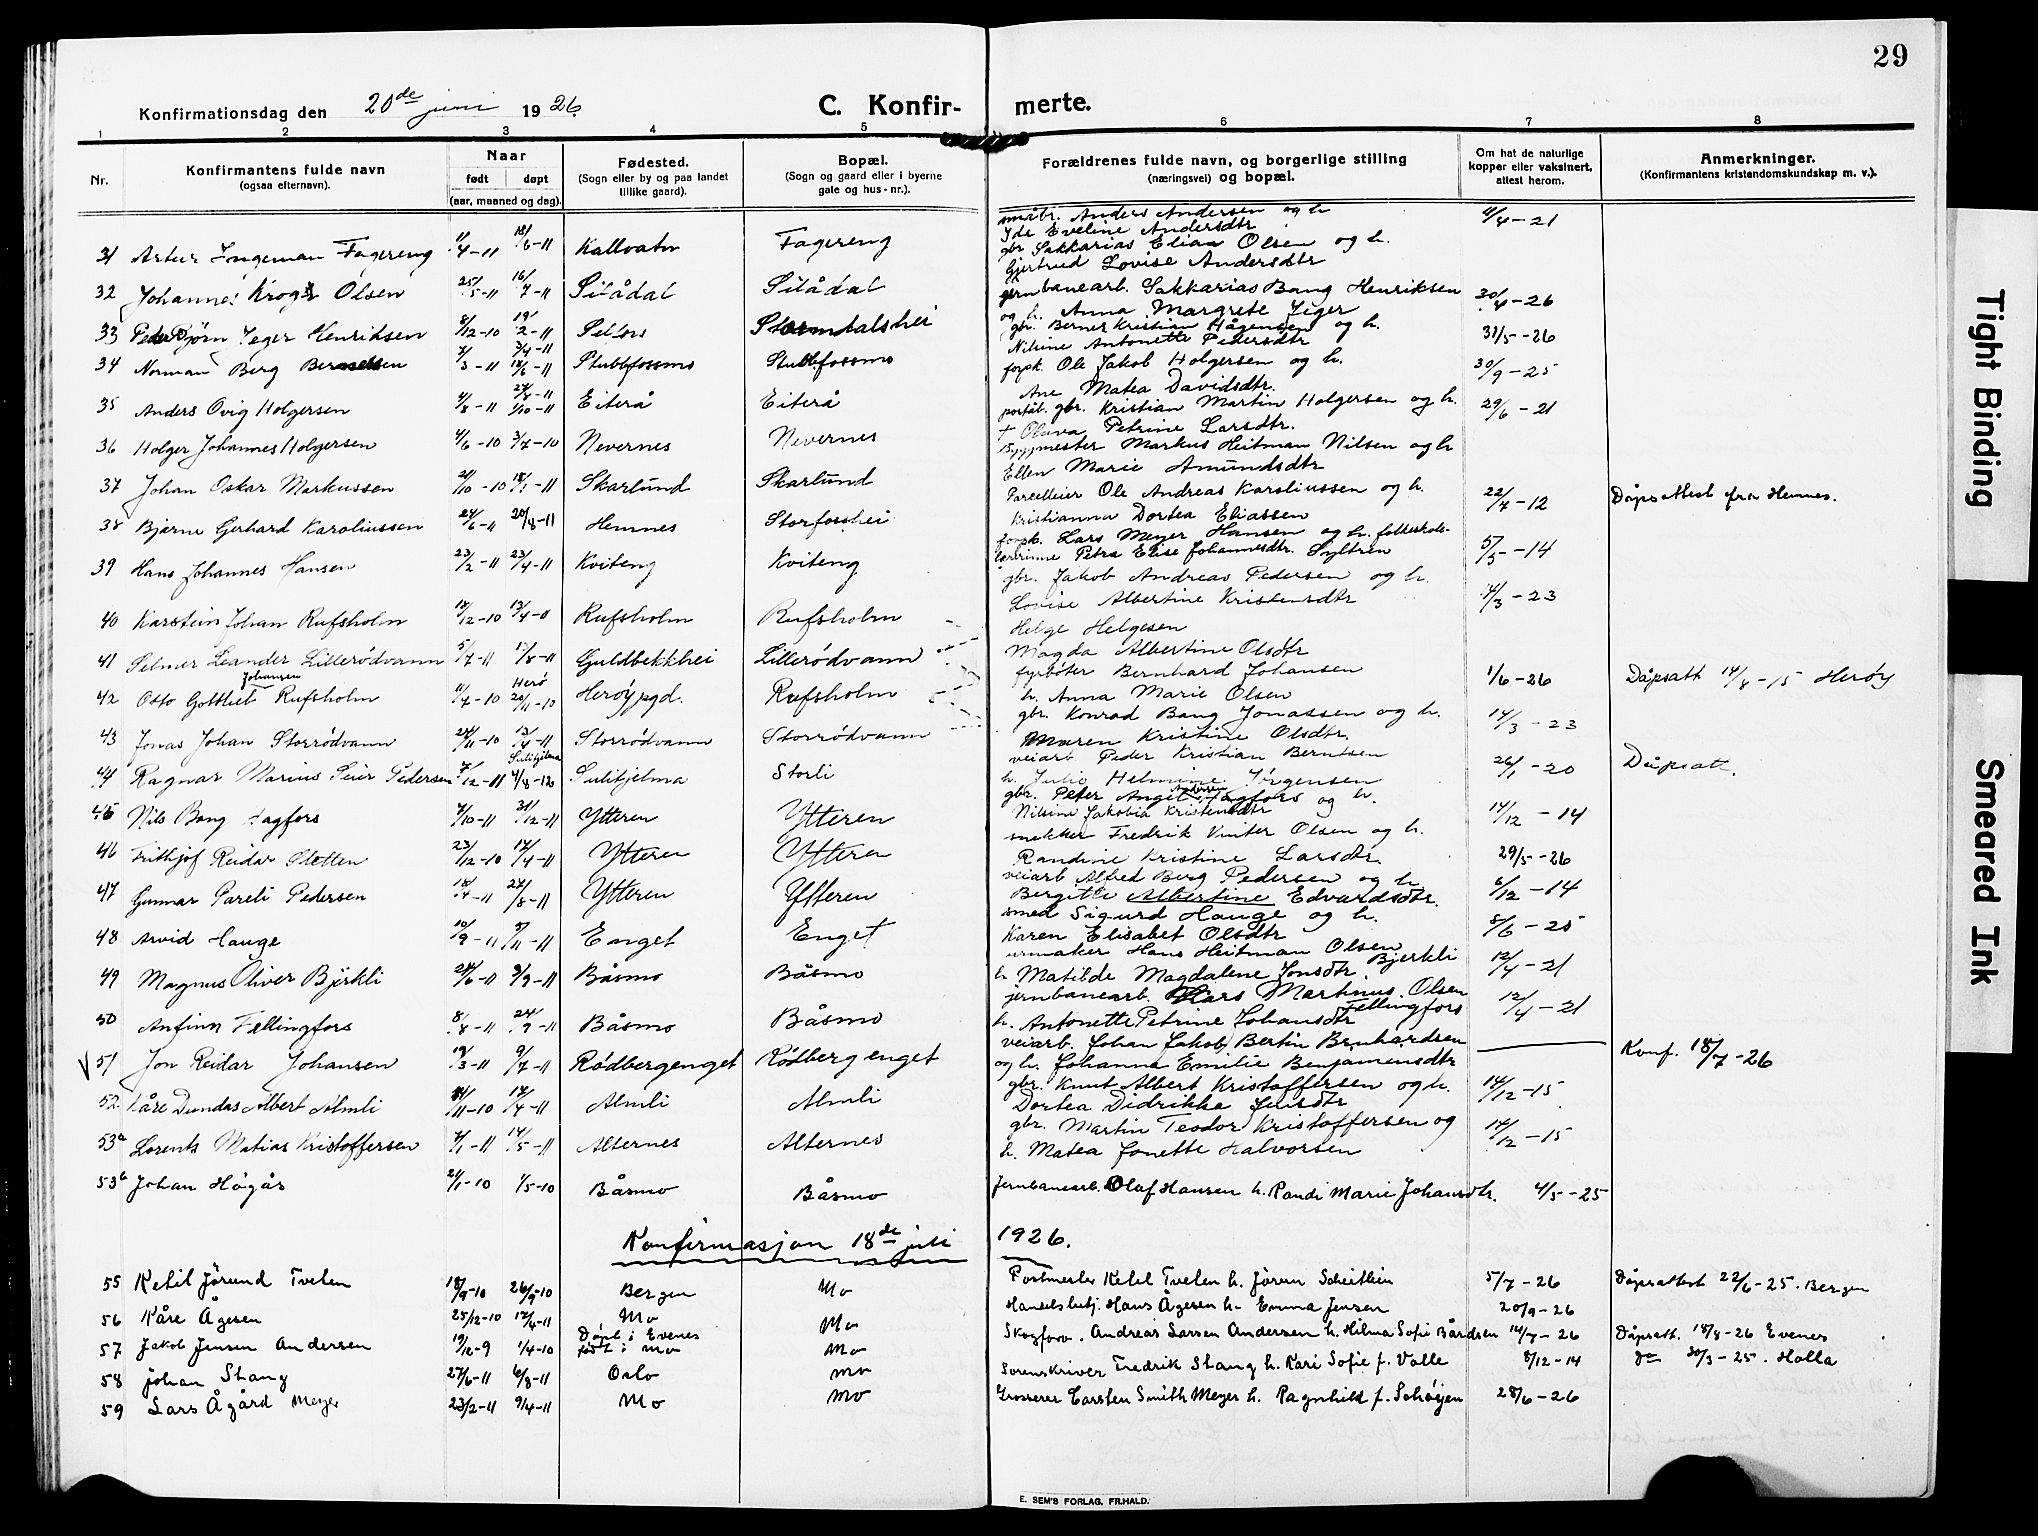 29
Konfirmationsdag den 20de juni 1926.
C. Konfir- merte.
1 2 3 4 5 6 7 8
Nr.
Konfirmantens fulde navn
(ogsaa efternavn).
Naar
født døpt
(aar, maaned og dag).
Fødested.
(Sogn eller by og paa landet
tillike gaard).
Bopæl.
(Sogn og gaard eller i byerne
gate og hus-nr.).
Forældrenes fulde navn, og borgerlige stilling
(næringsvei) og bopæl.
Om hat de naturlige
kopper eller vaksinert,
attest herom.
Anmerkninger.
(Konfirmantens kristandomskundskap m. v.).
småbr. Anders Andersen og h 4/4-21
Ide Eveline Andersdtr
31 Artur Ingeman Fagereng 11/4-11 18/6-11 Kallvatn Fagereng
gbr Sakkarias Elias Olsen og h.
Gjertrud Lovise Andersdtr
32 Johannes Krogh Olsen 25/5-11 16/7-11 Silådal Silådal
jernbanearb. Sakkarias Bang Henriksen 30/4-26
og h. Anna Margrete Jeger
33 Peder Bjørn Jeger Henriksen 8/12-10 19/2-11 Selfors Stormdalshei
gbr. Berner Kristian Hågensen og h. 31/5-26
Nilsine Antonette Pedersdtr
34 Norman Berg Bernetsen 7/3-11 3/4-11 18/6-11 Stubbfossmo Stubbfossmo
forpk. Ole Jakob Holgersen og h. 30/9-25
Ane Matea Davidsdtr.
35 Anders Ovig Holgersen 4/8-11 27/8-11 1/10-11 Eiterå Eiterå
gbr. Kristian Martin Holgersen og h. 29/6-21
† Olava Petrine Larsdtr.
36 Holger Johannes Holgersen 4/6-10 3/7-10 Nevernes Nevernes
Byggmester Markus Heitman Nilsen og h
Ellen Marie Amundsdtr
37 Johan Oskar Markussen 21/10-10 18/1-11 Skarlund Skarlund
Parcelleier Ole Andreas Karoliussen og h. 22/7-12 Dåpsattest fra Hemnes.
Kristianna Dortea Eliassen
38 Bjarne Gerhard Karoliussen 24/6-11 20/8-11 Hemnes Storforshei
forpk. Lars Meyer Hansen og h. folkeskole-
lærerinne Petra Elise Johannesdtr. Syltren 5/5-14
39 Hans Johannes Hansen 23/2-11 23/4-11 Kviteng Kviteng
gbr. Jakob Andreas Pedersen og h.
Lovise Albertine Kristensdtr 14/3-23
40 Karstein Johan Rufsholm 18/12-10 17/4-11 Rufsholm Rufsholm
Helge Helgesen
Magda Albertine Olsdtr
41 Selmer Leander Lillerödvann 5/7-11 17/8-11 Guldbekkhei Lillerödvann
fyrbøter Bernhard Johansen 1/6-26 Dåpsatt 14/8-15 Herøy
h. Anna Marie Olsen
Johansen Herö
42 Otto Gottlieb Rufsholm 11/4-10 20/11-10 Herøy pgd. Rufsholm
gbr. Konrad Bang Jonassen og h. 14/3-23
Maren Kristine Olsdtr.
43 Jonas Johan Storrödvann 24/11-10 12/4-11 Storrödvann Storrödvann
veiarb Peder Kristian Berntsen 26/1-20 Dåpsatt.
h. Julie Helmine Jörgensen
Sulitjelma
44 Ragnar Marius Seier Pedersen 7/12-11 4/8-12 Sulitjelma Storli
Andersen
gbr. Peter Angel Hagfors og h.
Nilsine Jakobia Kristensdtr 14/12-14
45 Nils Bang Hagfors 7/10-11 31/12-11 Ytteren Ytteren
snekker Fredrik Vinter Olsen og h.
Randine Kristine Larsdtr. 29/5-26
46 Frithjof Reidar Sletten 23/12-10 17/4-11 Ytteren Ytteren
veiarb Alfred Berg Pedersen og h
Bergitte Albertine Edvardsdtr. 6/12-14
47 Gunnar Pareli Pedersen 18/4-11 27/8-11 Ytteren Ytteren
smed Sigurd Hauge og h. 8/6-25
Karen Elisabet Olsdtr
48 Arvid Hauge 10/9-11 5/11-11 Enget Enget
urmaker Hans Heitman Olsen Bjerkli
h. Matilde Magdalene Jonsdtr. 12/4-21
49 Magnus Oliver Björkli 24/6-11 3/9-11 Båsmo Båsmo
jernbanearb. Lars Martinus Olsen Fellingfors
h. Antonette Petrine Johansdtr 12/4-21
50 Anfinn Fellingfors 8/8-11 24/9-11 Båsmo Båsmo
veiarb. Johan Jakob Bertin Bernhardsen
og h. Johanna Emilie Benjaminsdtr Konf. 18/7-26
51 Jon Reidar Johansen 19/3-11 9/7-11 Rødbergenget Rødbergenget
gbr. Knut Albert Kristoffersen og h. 14/12-15
Dortea Didrikke Jensdtr
52 Kåre Dundas Albert Almli 11/11-10 17/4-11 Almli Almli
gbr. Martin Teodor Kristoffersen og 14/12-15
h. Matea Jonette Halvorsen
53a Lorents Matias Kristoffersen 7/1-11 14/5-11 Alternes Alternes
53b Johan Högås 21/1-10 1/5-10 Båsmo Båsmo Jernbanearb. Olaf Hansen h. Randi Marie Johansdtr. 4/5-25
Konfirmasjon 18de juli 1926.
55 Ketil Jörund Tveten 18/9-10 26/9-10 Bergen Mo Postmester Ketel Tveten h. Jörun Scheitlien 5/7-26 Dåpsattest 22/6-25. Bergen
56 Kåre Ågesen 25/12-10 17/4-11 Mo Mo Handelsbetj. Hans Ågesen h. Emma Jensen 20/9-26
57 Jakob Jensen Andersen 19/12-9 1/4-10 Döpt i Evenes född i Mo Mo Skogforv. Andreas Larsen Andersen h. Hilma Sofie Bårdsen 14/7-26 Dåpsatt. 18/8-26 Evenes
58 Johan Stang 27/6-11 6/8-11 Oslo Mo Sorenskriver Fredrik Stang h. Kari Sofie f. Valle 8/12-14 do 30/3-25. Holla
59 Lars Ågård Meyer 23/2-11 9/4-11 Mo Mo Grosserer Carsten Smith Meyer h. Ragnhild f. Schöyen 28/6-26
E. SEM'S FORLAG, FR.HALD.
Tight Binding
Smeared Ink